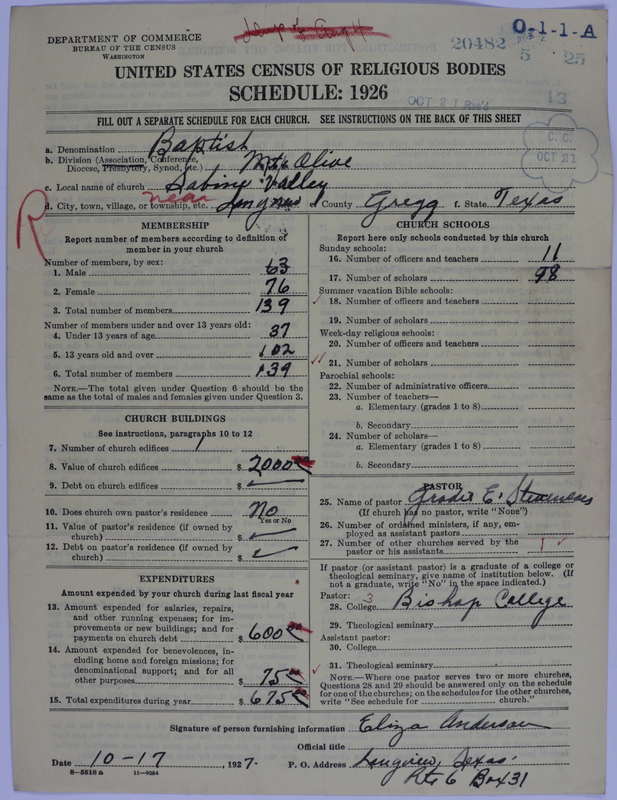 DEPARTMENT OF COMMERCE
BUREAU OF THE CENSUS
WASHINGTON
20482
O-1-1-A
5 25
13
UNITED STATES CENSUS OF RELIGIOUS BODIES
SCHEDULE: 1926
OCT 21 Rec'd
FILL OUT A SEPARATE SCHEDULE FOR EACH CHURCH. SEE INSTRUCTIONS ON THE BACK OF THIS SHEET
C. C.
OCT 21
a. Denomination Baptist
b. Division (Association, Conference, Diocese, Presbytery, Synod, etc.) Mt. Olive
c. Local name of church Sabine Valley
d. City, town, village, or township, etc. near Longview e. County Gregg f. State Texas
R
MEMBERSHIP
Report number of members according to definition of
member in your church
Number of members, by sex:
1. Male 63
2. Female 76
3. Total number of members 139
Number of members under and over 13 years old:
4. Under 13 years of age 37
5. 13 years old and over 102
6. Total number of members 139
NOTE.—The total given under Question 6 should be the
same as the total of males and females given under Question 3.
CHURCH BUILDINGS
See instructions, paragraphs 10 to 12
7. Number of church edifices 1
8. Value of church edifices $ 2000
9. Debt on church edifices $
10. Does church own pastor's residence No
Yes or No
11. Value of pastor's residence (if owned by
church) $
12. Debt on pastor's residence (if owned by
church) $
EXPENDITURES
Amount expended by church during last fiscal year
13. Amount expended for salaries, repairs,
and other running expenses; for im-
provements or new buildings; and for
payments on church debt $ 600
14. Amount expended for benevolences, in-
cluding home and foreign missions; for
denominational support; and for all
other purposes $ 75
15. Total expenditures during year $ 675
CHURCH SCHOOLS
Report here only schools conducted by this church
Sunday schools:
16. Number of officers and teachers 11
17. Number of scholars 98
Summer vacation Bible schools:
18. Number of officers and teachers
19. Number of scholars
Week-day religious schools:
20. Number of officers and teachers
21. Number of scholars
Parochial schools:
22. Number of administrative officers
23. Number of teachers—
a. Elementary (grades 1 to 8)
b. Secondary
24. Number of scholars—
a. Elementary (grades 1 to 8)
b. Secondary
PASTOR
25. Name of pastor E.
(If church has no pastor, write "None")
26. Number of ordained ministers, if any, em-
ployed as assistant pastors
27. Number of other churches served by the
pastor or his assistants 1
If pastor (or assistant pastor) is a graduate of a college or
theological seminary, give name of institution below. (If
not a graduate, write "No" in the space indicated.)
Pastor: 3
28. College Bishop College
29. Theological seminary
Assistant pastor:
30. College
31. Theological seminary
NOTE.—Where one pastor serves two or more churches,
Questions 28 and 29 should be answered only on the schedule
for one of the churches; on the schedules for the other churches,
write "See schedule for church."
Signature of person furnishing information Eliza Anderson
Official title
Date 10-17, 1927. P. O. Address Longview, Texas.
Rte 6 Box 31
8-5518 a 11-9084